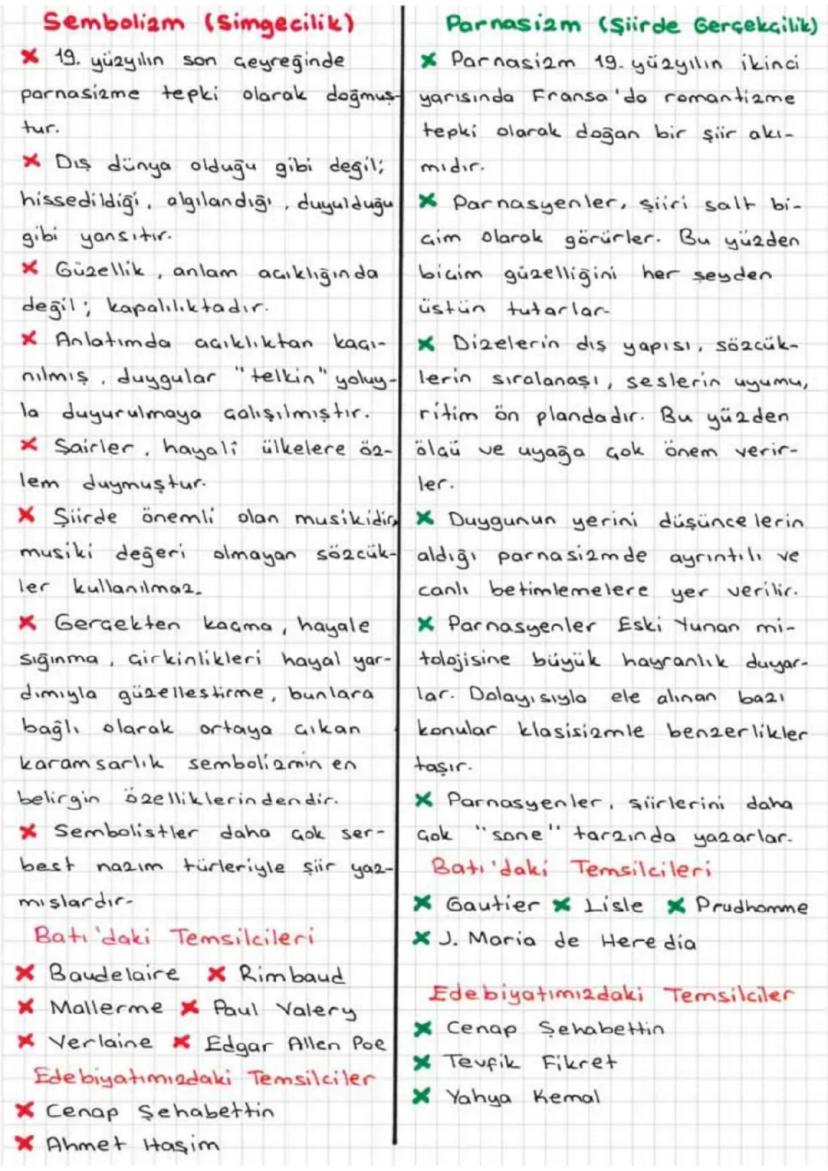 Sembolizm (Simgecilik)
× 19. yüzyılın son çeyreğinde
parnasizme tepki olarak doğmuş-
tur.
× Dış dünya olduğu gibi değil;
hissedildiği, algılandığı, duyulduğu
gibi yansıtır.
× Güzellik, anlam açıklığında
değil; kapalılıktadır.
× Anlatımda açıklıktan kaçı-
nılmış, duygular "telkin" yoluy-
la duyurulmaya çalışılmıştır.
× Şairler, hayalî ülkelere öz-
lem duymuştur.
× Şiirde önemli olan musikidir,
musiki değeri olmayan sözcük-
ler kullanılmaz.
× Gerçekten kaçma, hayale
sığınma, çirkinlikleri hayal yar-
dımıyla güzelleştirme, bunlara
bağlı olarak ortaya çıkan
karamsarlık sembolizmin en
belirgin özelliklerindendir.
× Sembolistler daha çok ser-
best nazım türleriyle şiir yaz-
mışlardır.
Batı'daki Temsilcileri
× Baudelaire × Rimbaud
× Mallerme × Paul Valery
× Verlaine × Edgar Allen Poe
Edebiyatımızdaki Temsilciler
× Cenap Şehabettin
× Ahmet Haşim
Parnasizm (Şiirde Gerçekçilik)
× Parnasizm 19. yüzyılın ikinci
yarısında Fransa'da romantizme
tepki olarak doğan bir şiir akı-
mıdır.
× Parnasyenler, şiiri salt bi-
çim olarak görürler. Bu yüzden
biçim güzelliğini her şeyden
üstün tutarlar.
× Dizelerin dış yapısı, sözcük-
lerin sıralanaşı, seslerin uyumu,
ritim ön plandadır. Bu yüzden
ölçü ve uyağa çok önem verir-
ler.
× Duygunun yerini düşüncelerin
aldığı parnasizmde ayrıntılı ve
canlı betimlemelere yer verilir.
× Parnasyenler Eski Yunan mi-
tolojisine büyük hayranlık duyar-
lar. Dolayısıyla ele alınan bazı
konular klasisizmle benzerlikler
taşır.
× Parnasyenler, şiirlerini daha
çok "sone" tarzında yazarlar.
Batı'daki Temsilcileri
× Gautier × Lisle × Prudhomme
× J. Maria de Heredia
Edebiyatımızdaki Temsilciler
× Cenap Şehabettin
× Tevfik Fikret
× Yahya Kemal